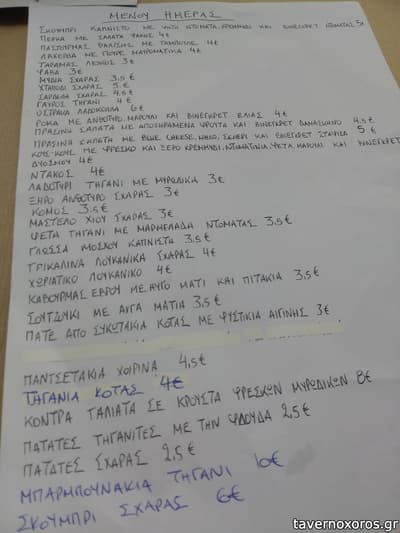 ΜΕΝΟΥ ΗΜΕΡΑΣ
ΣΚΟΥΜΠΡΙ ΚΑΠΝΙΣΤΟ ΜΕ ΚΡΕΜΜΥΔΙ ΚΑΙ ΒΙΝΕΓΚΡΕΤ ΝΤΟΜΑΤΑΣ 5€
ΠΕΡΚΑ ΜΕ ΣΑΛΑΤΑ ΦΑΚΗΣ 4€
ΠΑΣΤΟΥΡΜΑΣ ΘΑΛΑΣΣΗΣ ΜΕ ΤΑΜΠΟΥΛΕ 4€
ΛΑΚΕΡΔΑ ΜΕ ΠΟΥΡΕ ΜΑΥΡΟΜΑΤΙΚΑ 4€
ΤΑΡΑΜΑΣ ΛΕΥΚΟΣ 3€
ΦΑΒΑ 3€
ΜΥΔΙΑ ΣΧΑΡΑΣ 3,5€
ΧΤΑΠΟΔΙ ΣΧΑΡΑΣ 5€
ΣΑΡΔΕΛΑ ΣΧΑΡΑΣ 4,5€
ΓΑΥΡΟΣ ΤΗΓΑΝΙ 4€
ΛΑΔΟΚΟΛΛΑ 6€
ΡΟΚΑ ΜΕ ΑΝΘΟΤΥΡΟ, ΜΑΡΟΥΛΙ ΚΑΙ ΒΙΝΕΓΚΡΕΤ ΕΛΙΑΣ 4€
ΠΡΑΣΙΝΗ ΣΑΛΑΤΑ ΜΕ ΑΠΟΞΗΡΑΜΕΝΑ ΦΡΟΥΤΑ ΚΑΙ ΒΙΝΕΓΚΡΕΤ ΒΑΛΣΑΜΙΚΟ 4,5€
ΠΡΑΣΙΝΗ ΣΑΛΑΤΑ ΜΕ BLUE CHEESE, ΜΗΛΟ, ΚΑΙ ΒΙΝΕΓΚΡΕΤ ΣΤΑΦΙΔΑ 5€
ΚΟΥΣ-ΚΟΥΣ ΜΕ ΦΡΕΣΚΟ ΚΑΙ ΞΕΡΟ ΚΡΕΜΜΥΔΙ, ΝΤΟΜΑΤΙΝΙΑ, ΦΕΤΑ, ΜΑΡΟΥΛΙ ΚΑΙ ΒΙΝΕΓΚΡΕΤ
ΔΥΟΣΜΟΥ 4€
ΝΤΑΚΟΣ 4€
ΛΑΔΟΤΥΡΙ ΤΗΓΑΝΙ ΜΕ ΜΥΡΩΔΙΚΑ 3€
ΞΗΡΟ ΑΝΘΟΤΥΡΟ ΣΧΑΡΑΣ 3€
ΚΟΜΟΣ 3,5€
ΜΑΣΤΕΛΟ ΧΙΟΥ ΣΧΑΡΑΣ 3€
ΦΕΤΑ ΤΗΓΑΝΙ ΜΕ ΜΑΡΜΕΛΑΔΑ ΝΤΟΜΑΤΑΣ 3,5€
ΓΛΩΣΣΑ ΜΟΣΧΟΥ ΚΑΠΝΙΣΤΗ 3,5€
ΤΡΙΚΑΛΙΝΑ ΛΟΥΚΑΝΙΚΑ ΣΧΑΡΑΣ 4€
ΧΩΡΙΑΤΙΚΟ ΛΟΥΚΑΝΙΚΟ 4€
ΚΑΒΟΥΡΜΑΣ ΕΒΡΟΥ ΜΕ ΑΥΓΟ ΜΑΤΙ ΚΑΙ ΠΙΤΑΚΙΑ 3,5€
ΣΟΥΤΖΟΥΚΙ ΜΕ ΑΥΓΑ ΜΑΤΙΑ 3,5€
ΠΑΤΕ ΑΠΟ ΣΥΚΩΤΑΚΙΑ ΚΟΤΑΣ ΜΕ ΦΙΣΤΙΚΙΑ ΑΙΓΙΝΗΣ 3€
ΠΑΝΤΣΕΤΑΚΙΑ ΧΟΙΡΙΝΑ 4,5€
ΤΗΓΑΝΙΑ ΚΟΤΑΣ 4€
ΚΟΝΤΡΑ ΤΑΛΙΑΤΑ ΣΕ ΚΡΟΥΣΤΑ ΦΡΕΣΚΩΝ ΜΥΡΩΔΙΚΩΝ 8€
ΠΑΤΑΤΕΣ ΤΗΓΑΝΙΤΕΣ ΜΕ ΤΗΝ ΦΛΟΥΔΑ 2,5€
ΠΑΤΑΤΕΣ ΣΧΑΡΑΣ 2,5€
ΜΠΑΡΜΠΟΥΝΑΚΙΑ ΤΗΓΑΝΙ 10€
ΣΚΟΥΜΠΡΙ ΣΧΑΡΑΣ 6€
tavernoxoros.gr